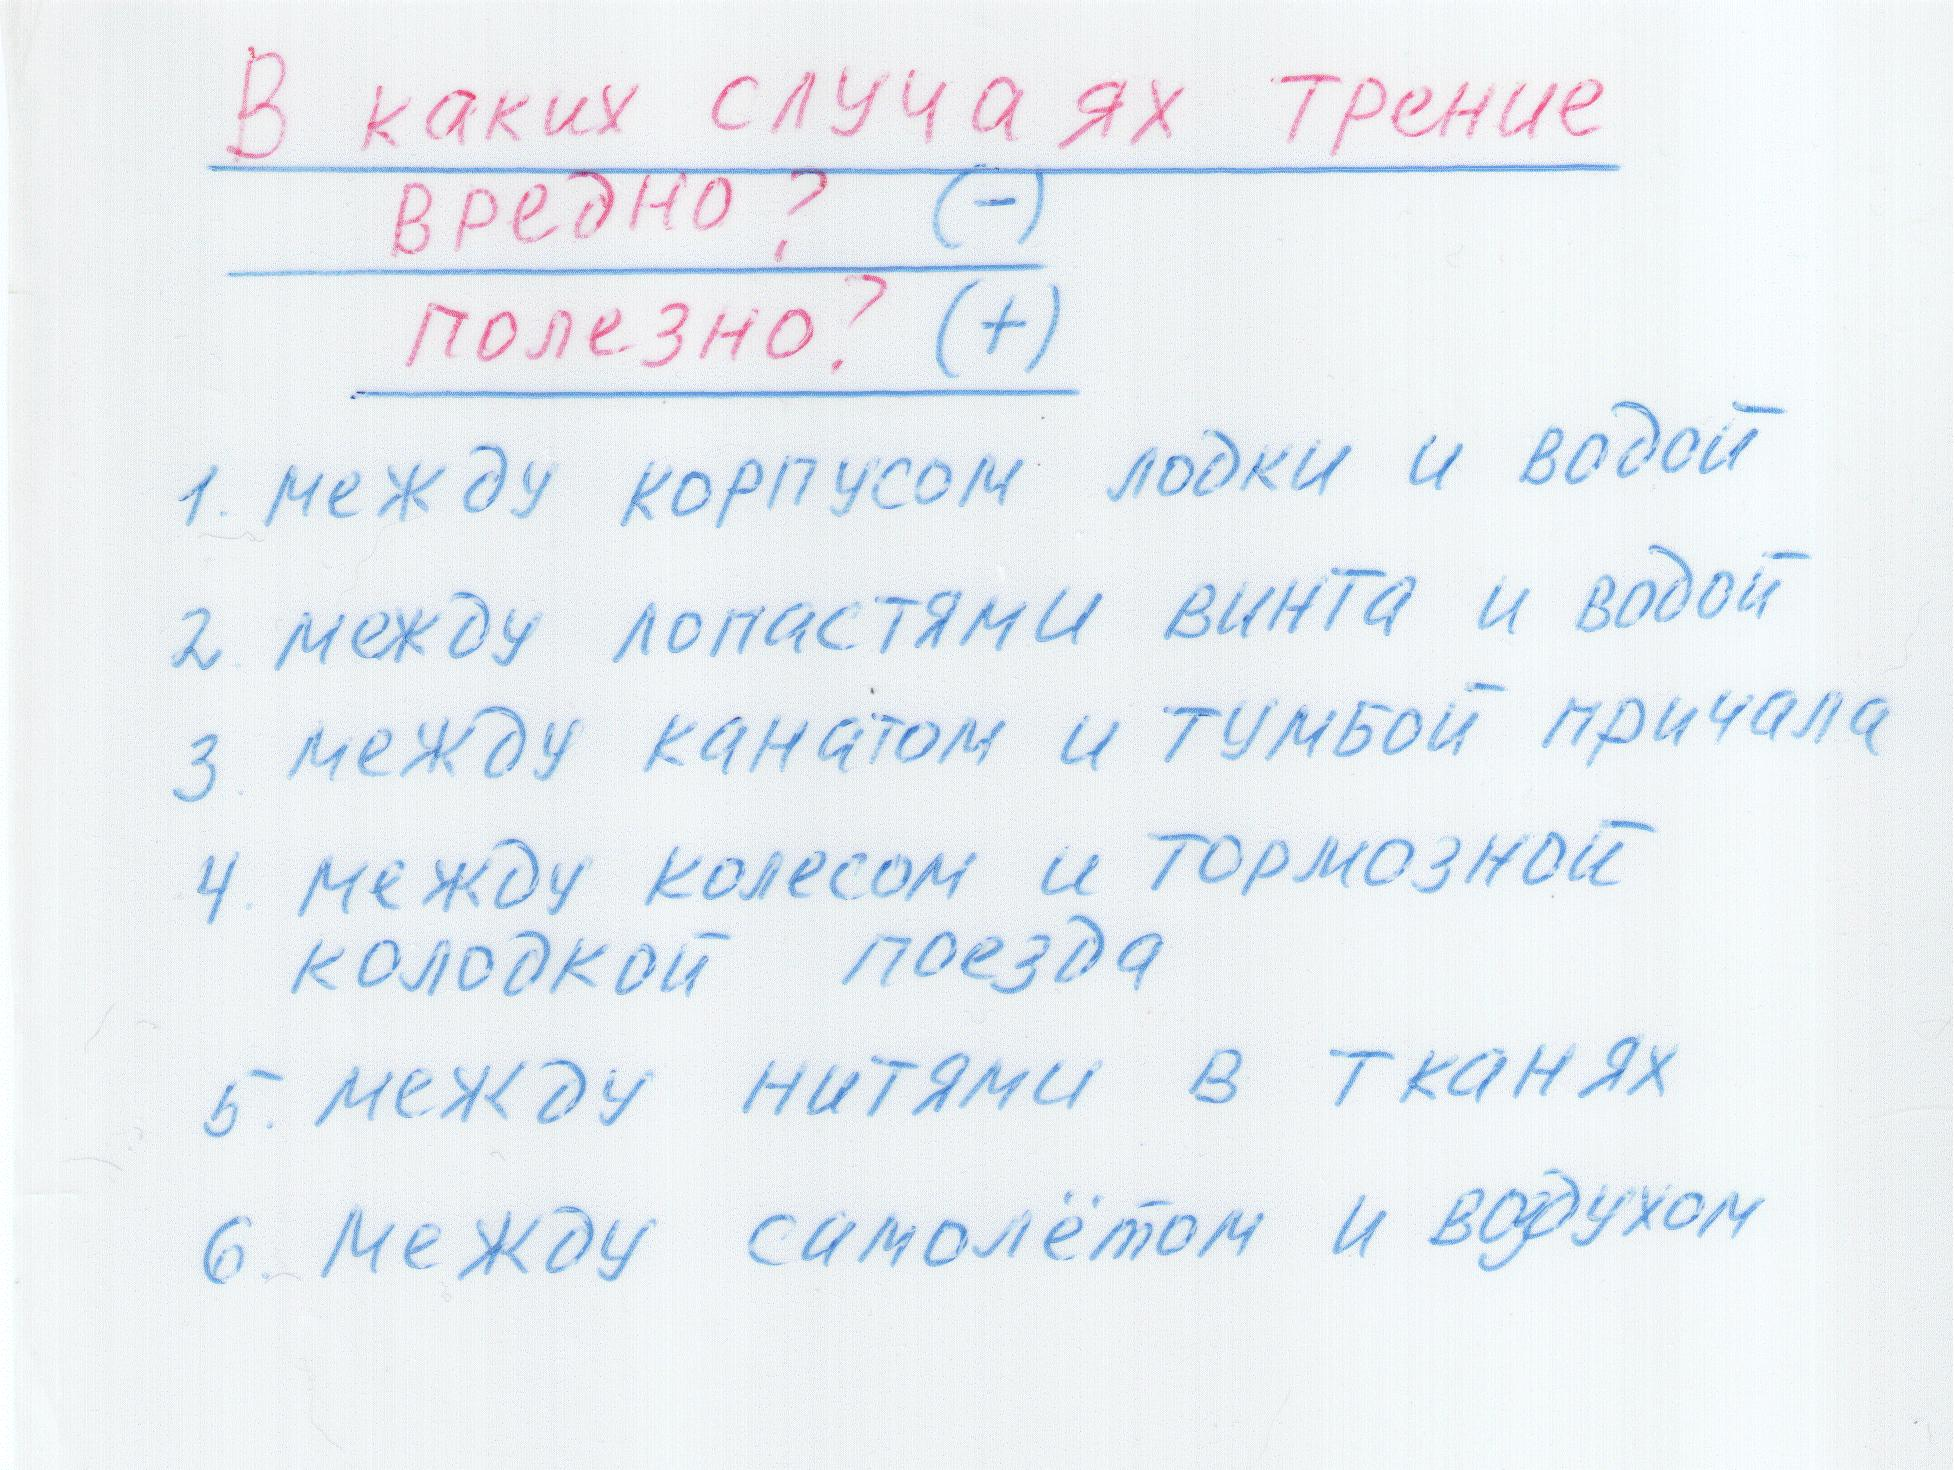 В каких случаях трение
вредно? (-)
полезно? (+)
1. между корпусом лодки и водой
2. между лопастями винта и водой
3. между канатом и тумбой причала
4. между колесом и тормозной
колодкой поезда
5. между нитями в тканях
6. Между самолётом и воздухом